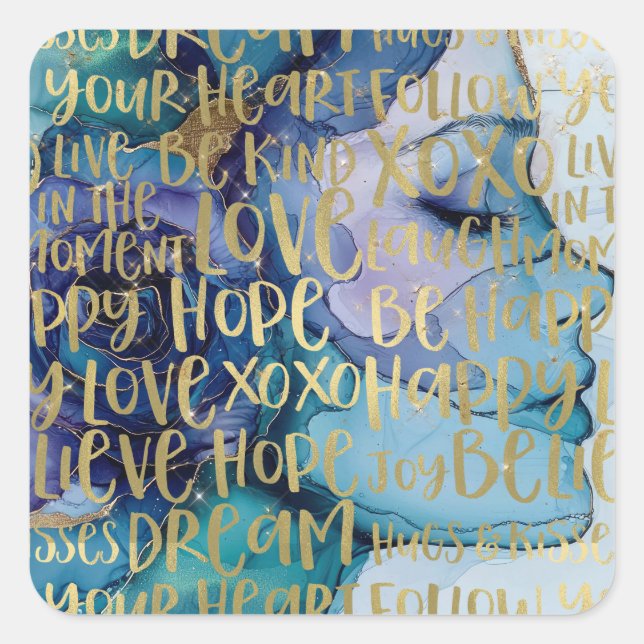 sses Dream Hugs & Kisses
Your Heart Follow Yo
Live Be Kind XOXO Liv
in the Love Laugh in t
Moment Mom
ppy Hope Be Happ
y Love XOXO Happy L
lieve Hope Joy Belie
sses Dream Hugs & Kisse
Your Heart Follow Yo